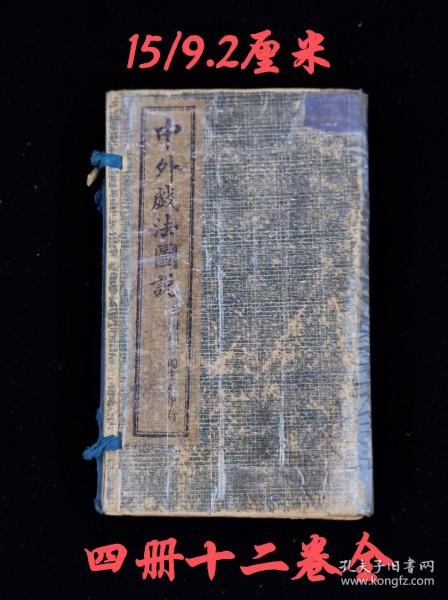 15/9.2厘米
中外戲法圖説
四册十二卷全
孔夫子旧书网
www.kongfz.com